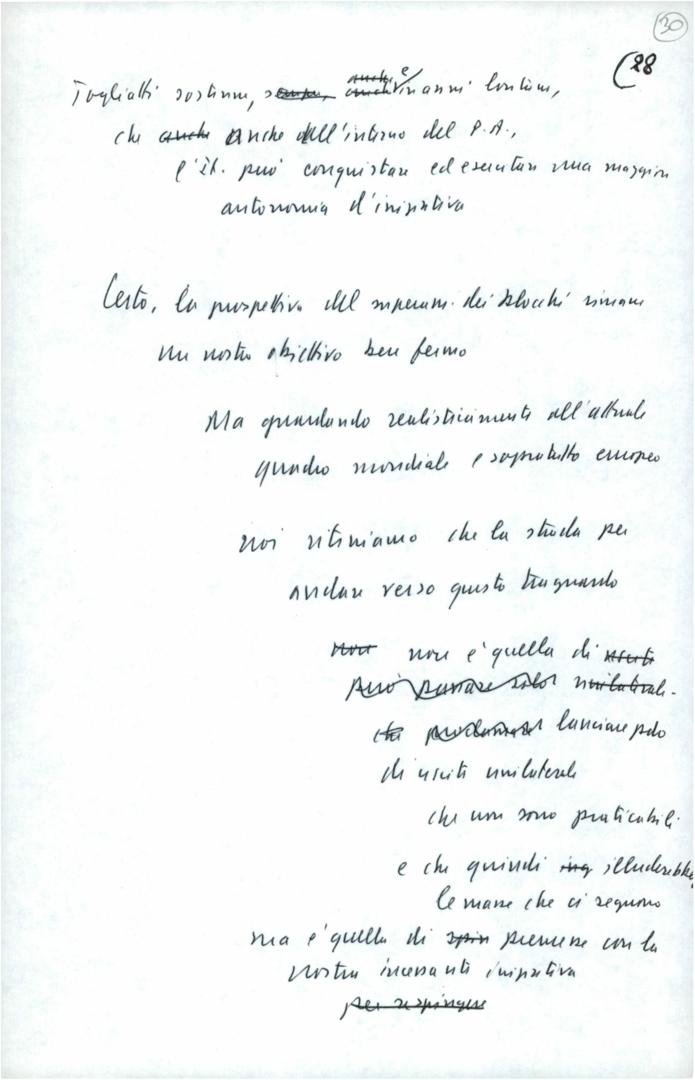 30
(28
Togliatti sostenne, sempre, anche e anche in anni lontani,
che anche Anche dall'interno del P.A.,
l'It. può conquistare ed esercitare una maggiore
autonomia d'iniziativa
Certo, la prospettiva del superam. dei blocchi rimane
un nostro obiettivo ben fermo
Ma guardando realisticamente all'attuale
quadro mondiale e sopratutto europeo
noi riteniamo che la strada per
andare verso questo traguardo
non non è quella di uscite
può passare solo unilaterali-
che proclamare lanciare pdo
di uscite unilaterale
che non sono praticabili
e che quindi ing illuderebbe
le masse che ci seguono
ma è quella di spin premere con la
nostra incessante iniziativa
per respingere